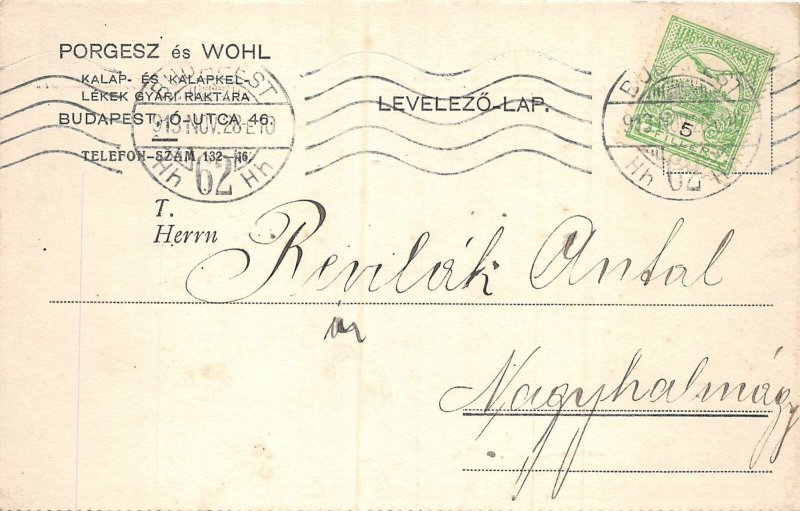 PORGESZ és WOHL
KALAP- ÉS KALAPKEL-
LÉKEK GYÁRI RAKTÁRA
BUDAPEST, Ó-UTCA 46.
TELEFON-SZÁM 132-46.
LEVELEZŐ-LAP.
BUDAPEST
913 NOV. 28 E 10
Hh 62 Hh
MAGYAR KIR. POSTA
5
FILLÉR
BUDAPEST
Hh 62 H
T.
Herrn
Revilák Antal
úr
Nagyhalmágy